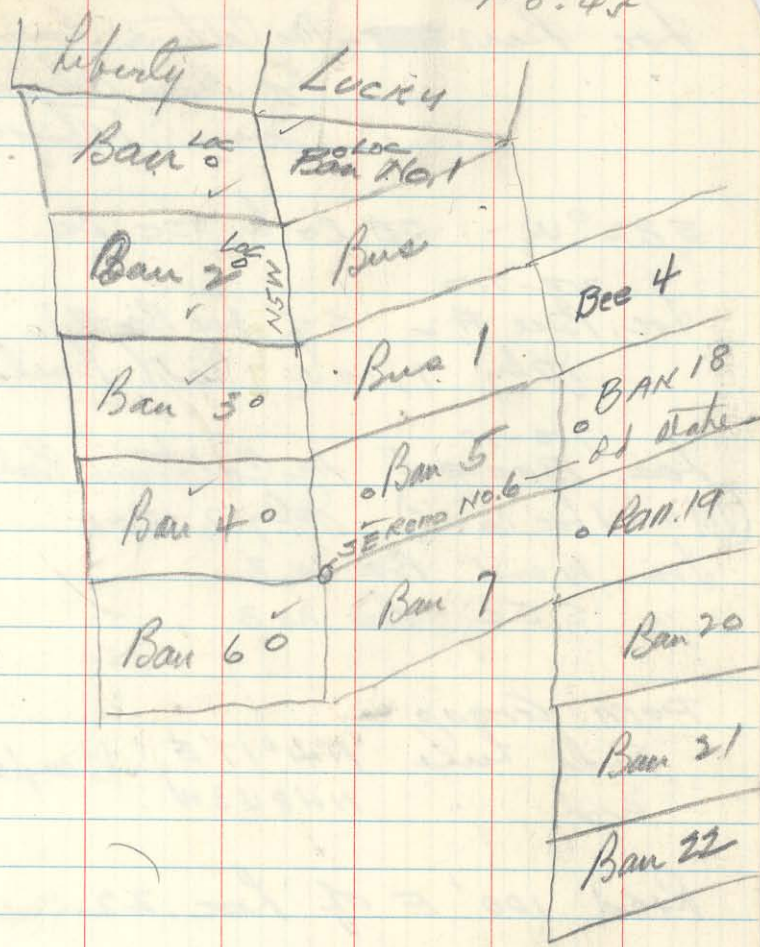 Liberty
Lucky
Ban LOC
Ban No. 1 LOC
Ban 2 LOC
N5W
Bus
Bee 4
Ban 3
Bus 1
BAN 18
Ban 4
Ban 5
SE NO. 6
Ban. 19
Ban 6
Ban 7
Ban 20
Ban 21
Ban 22